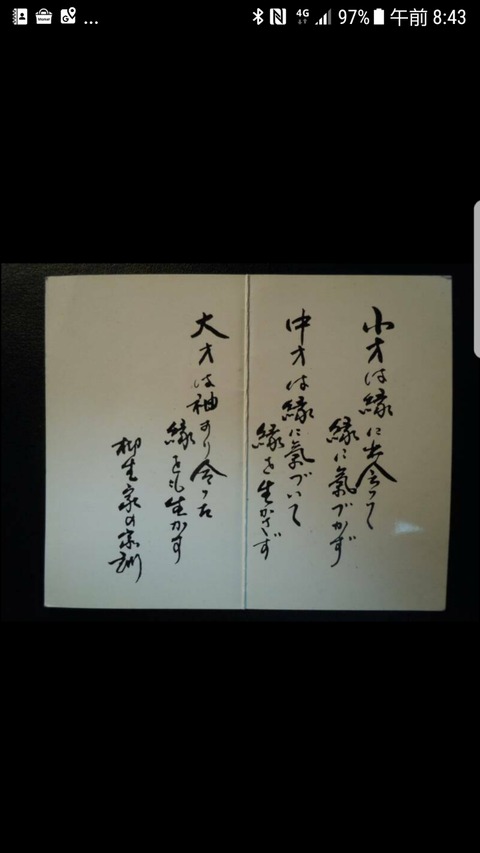 97% 午前 8:43
4G
小才は縁に出会って
縁に氣づかず
中才は縁に氣づいて
縁を生かさず
大才は袖すり合った
縁をも生かす
柳生家の家訓